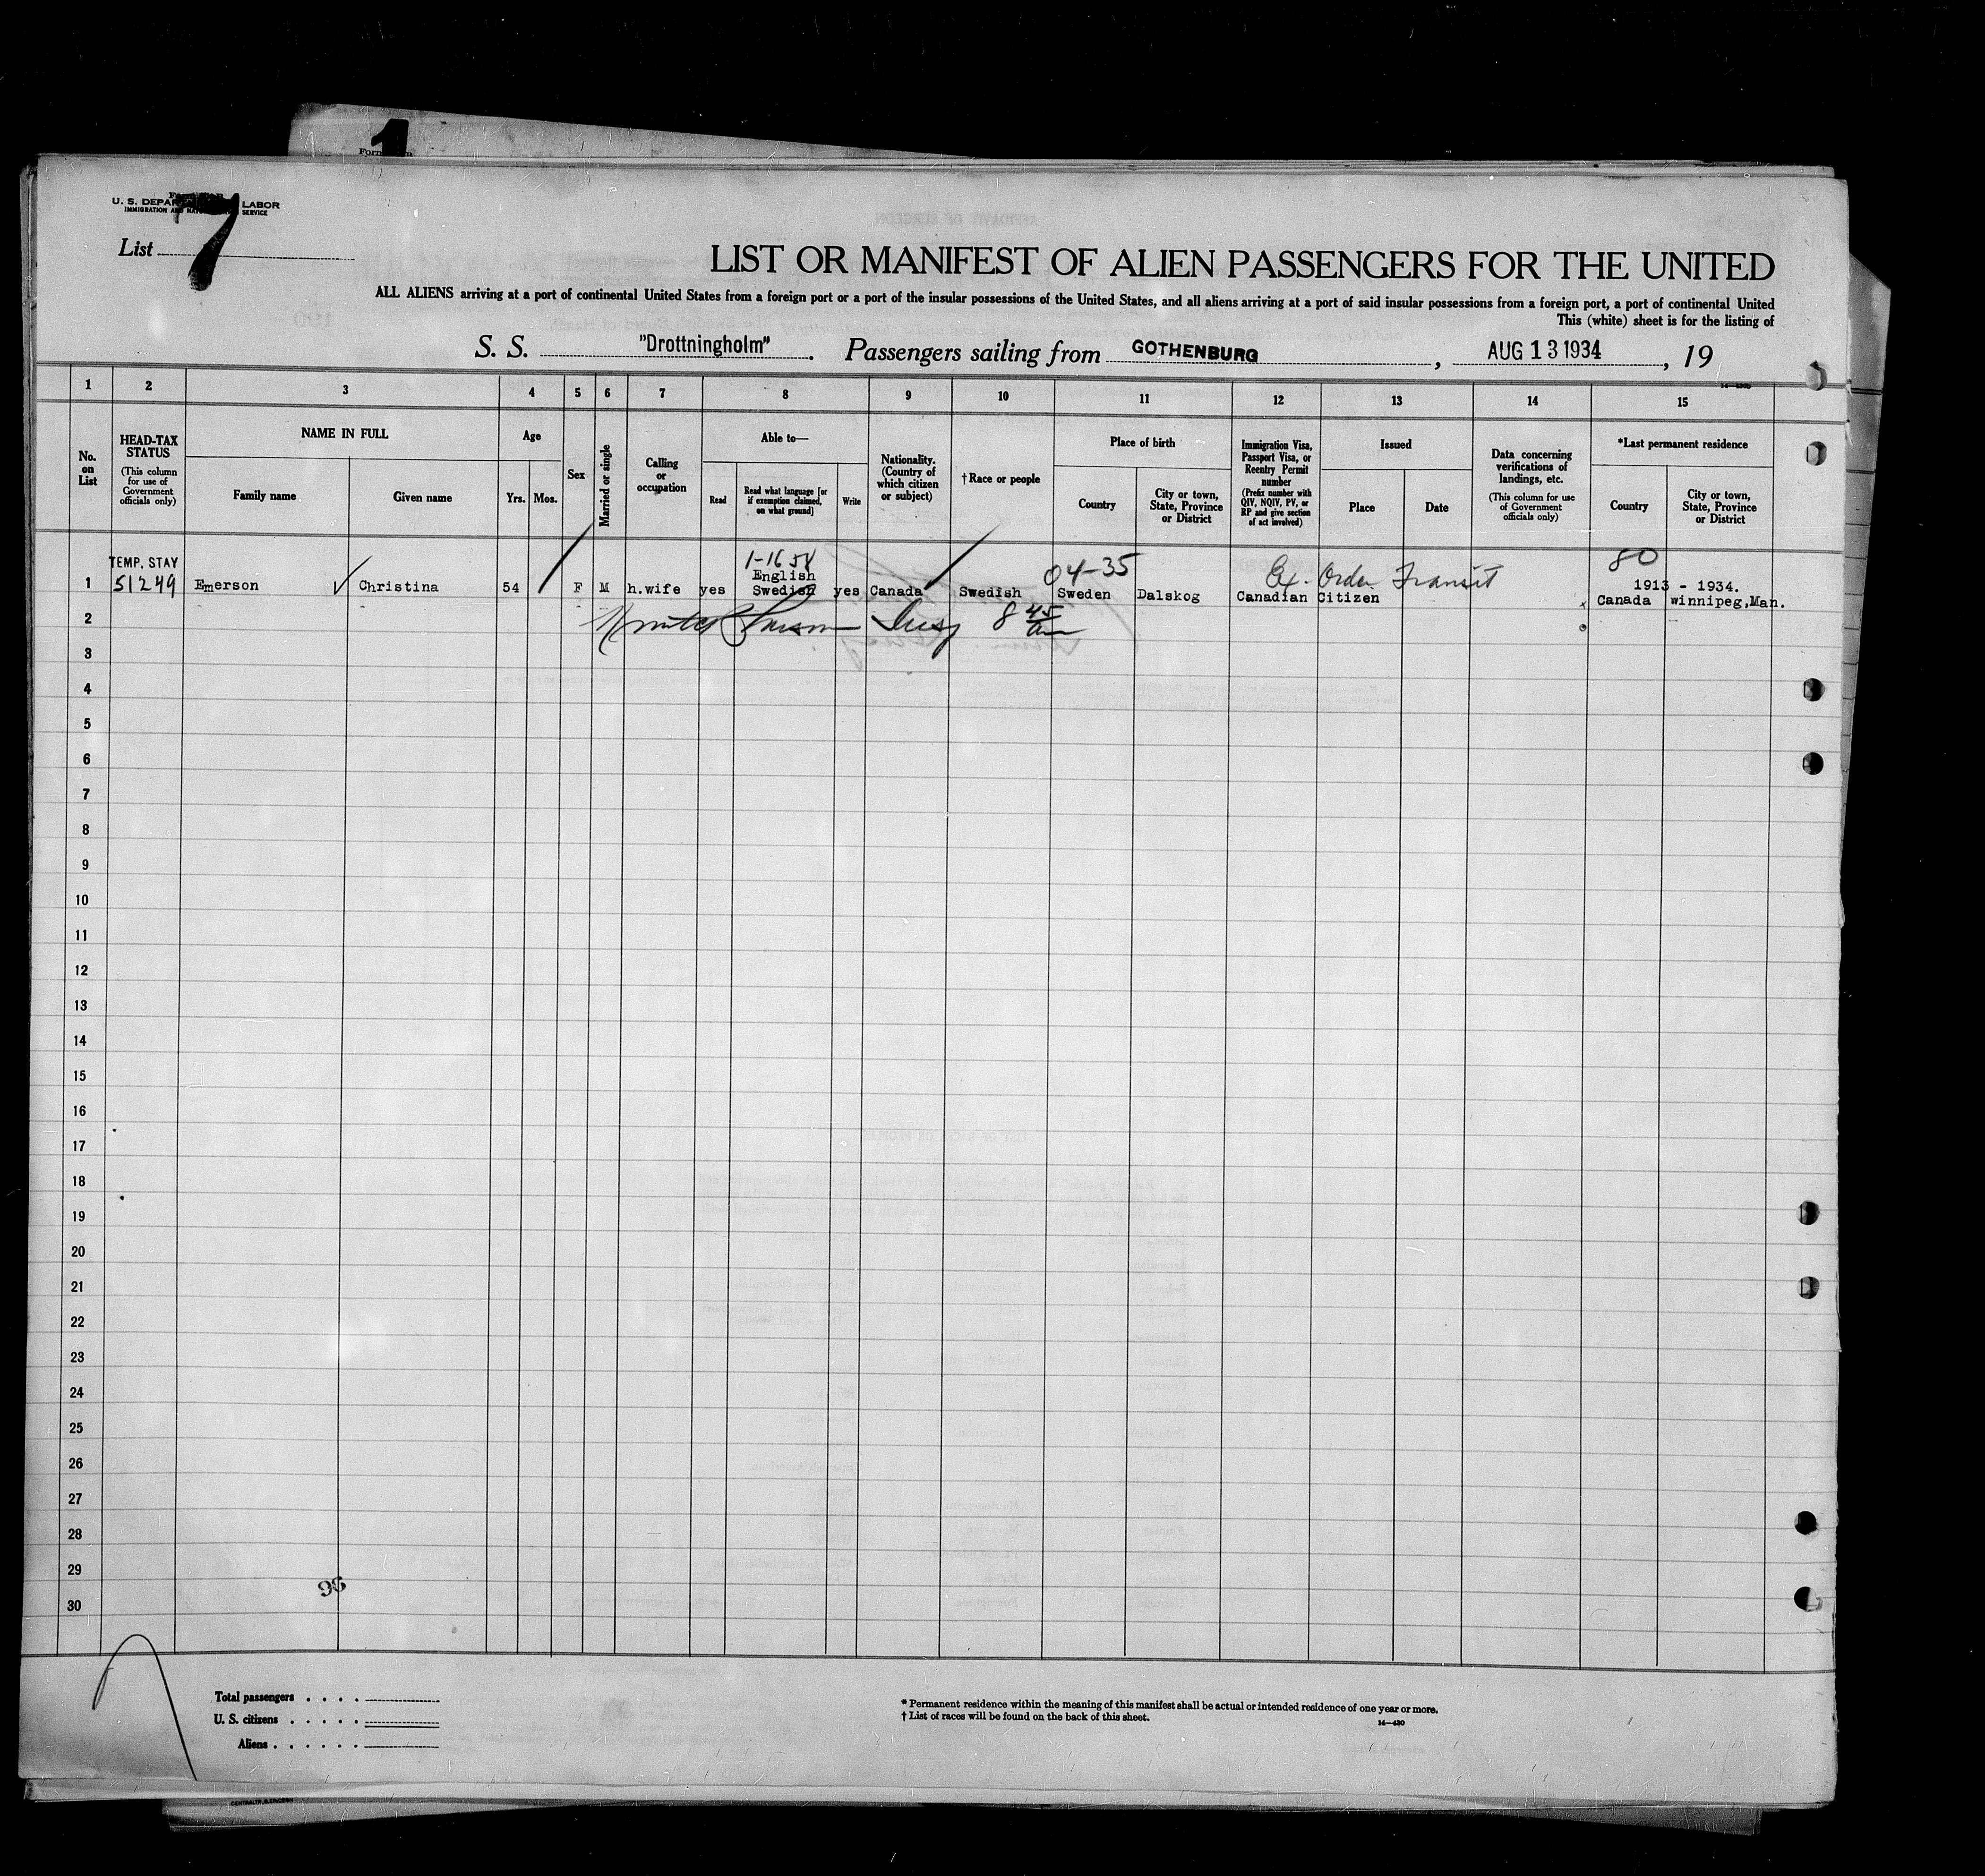 1
Form
U. S. DEPAR LABOR
IMMIGRATION AND NAT SERVICE
7
List
LIST OR MANIFEST OF ALIEN PASSENGERS FOR THE UNITED
ALL ALIENS arriving at a port of continental United States from a foreign port or a port of the insular possessions of the United States, and all aliens arriving at a port of said insular possessions from a foreign port, a port of continental United
This (white) sheet is for the listing of
S. S. "Drottningholm". Passengers sailing from GOTHENBURG, AUG 13 1934, 19
1 2 3 4 5 6 7 8 9 10 11 12 13 14 15
No. on List
HEAD-TAX STATUS
(This column for use of Government officials only)
NAME IN FULL
Family name Given name
Age
Yrs. Mos.
Sex
Married or single
Calling or occupation
Able to—
Read
Read what language [or if exemption claimed, on what ground]
Write
Nationality. (Country of which citizen or subject)
†Race or people
Place of birth
Country
City or town, State, Province or District
Immigration Visa, Passport Visa, or Reentry Permit number
(Prefix number with QIV, NQIV, PV, or RP and give section of act involved)
Issued
Place Date
Data concerning verifications of landings, etc.
(This column for use of Government officials only)
*Last permanent residence
Country
City or town, State, Province or District
TEMP. STAY 1-16 58 04-35 Ex. Order Transit 80
1 51249 Emerson Christina 54 F M h.wife yes English Swedish yes Canada Swedish Sweden Dalskog Canadian Citizen 1913 - 1934. Canada winnipeg,Man.
2 Insp 8 45 am
3
4
5
6
7
8
9
10
11
12
13
14
15
16
17
18
19
20
21
22
23
24
25
26
27
28
29
30
96
Total passengers . . . .
U. S. citizens . . . . .
Aliens . . . . . .
* Permanent residence within the meaning of this manifest shall be actual or intended residence of one year or more.
† List of races will be found on the back of this sheet.
14—430